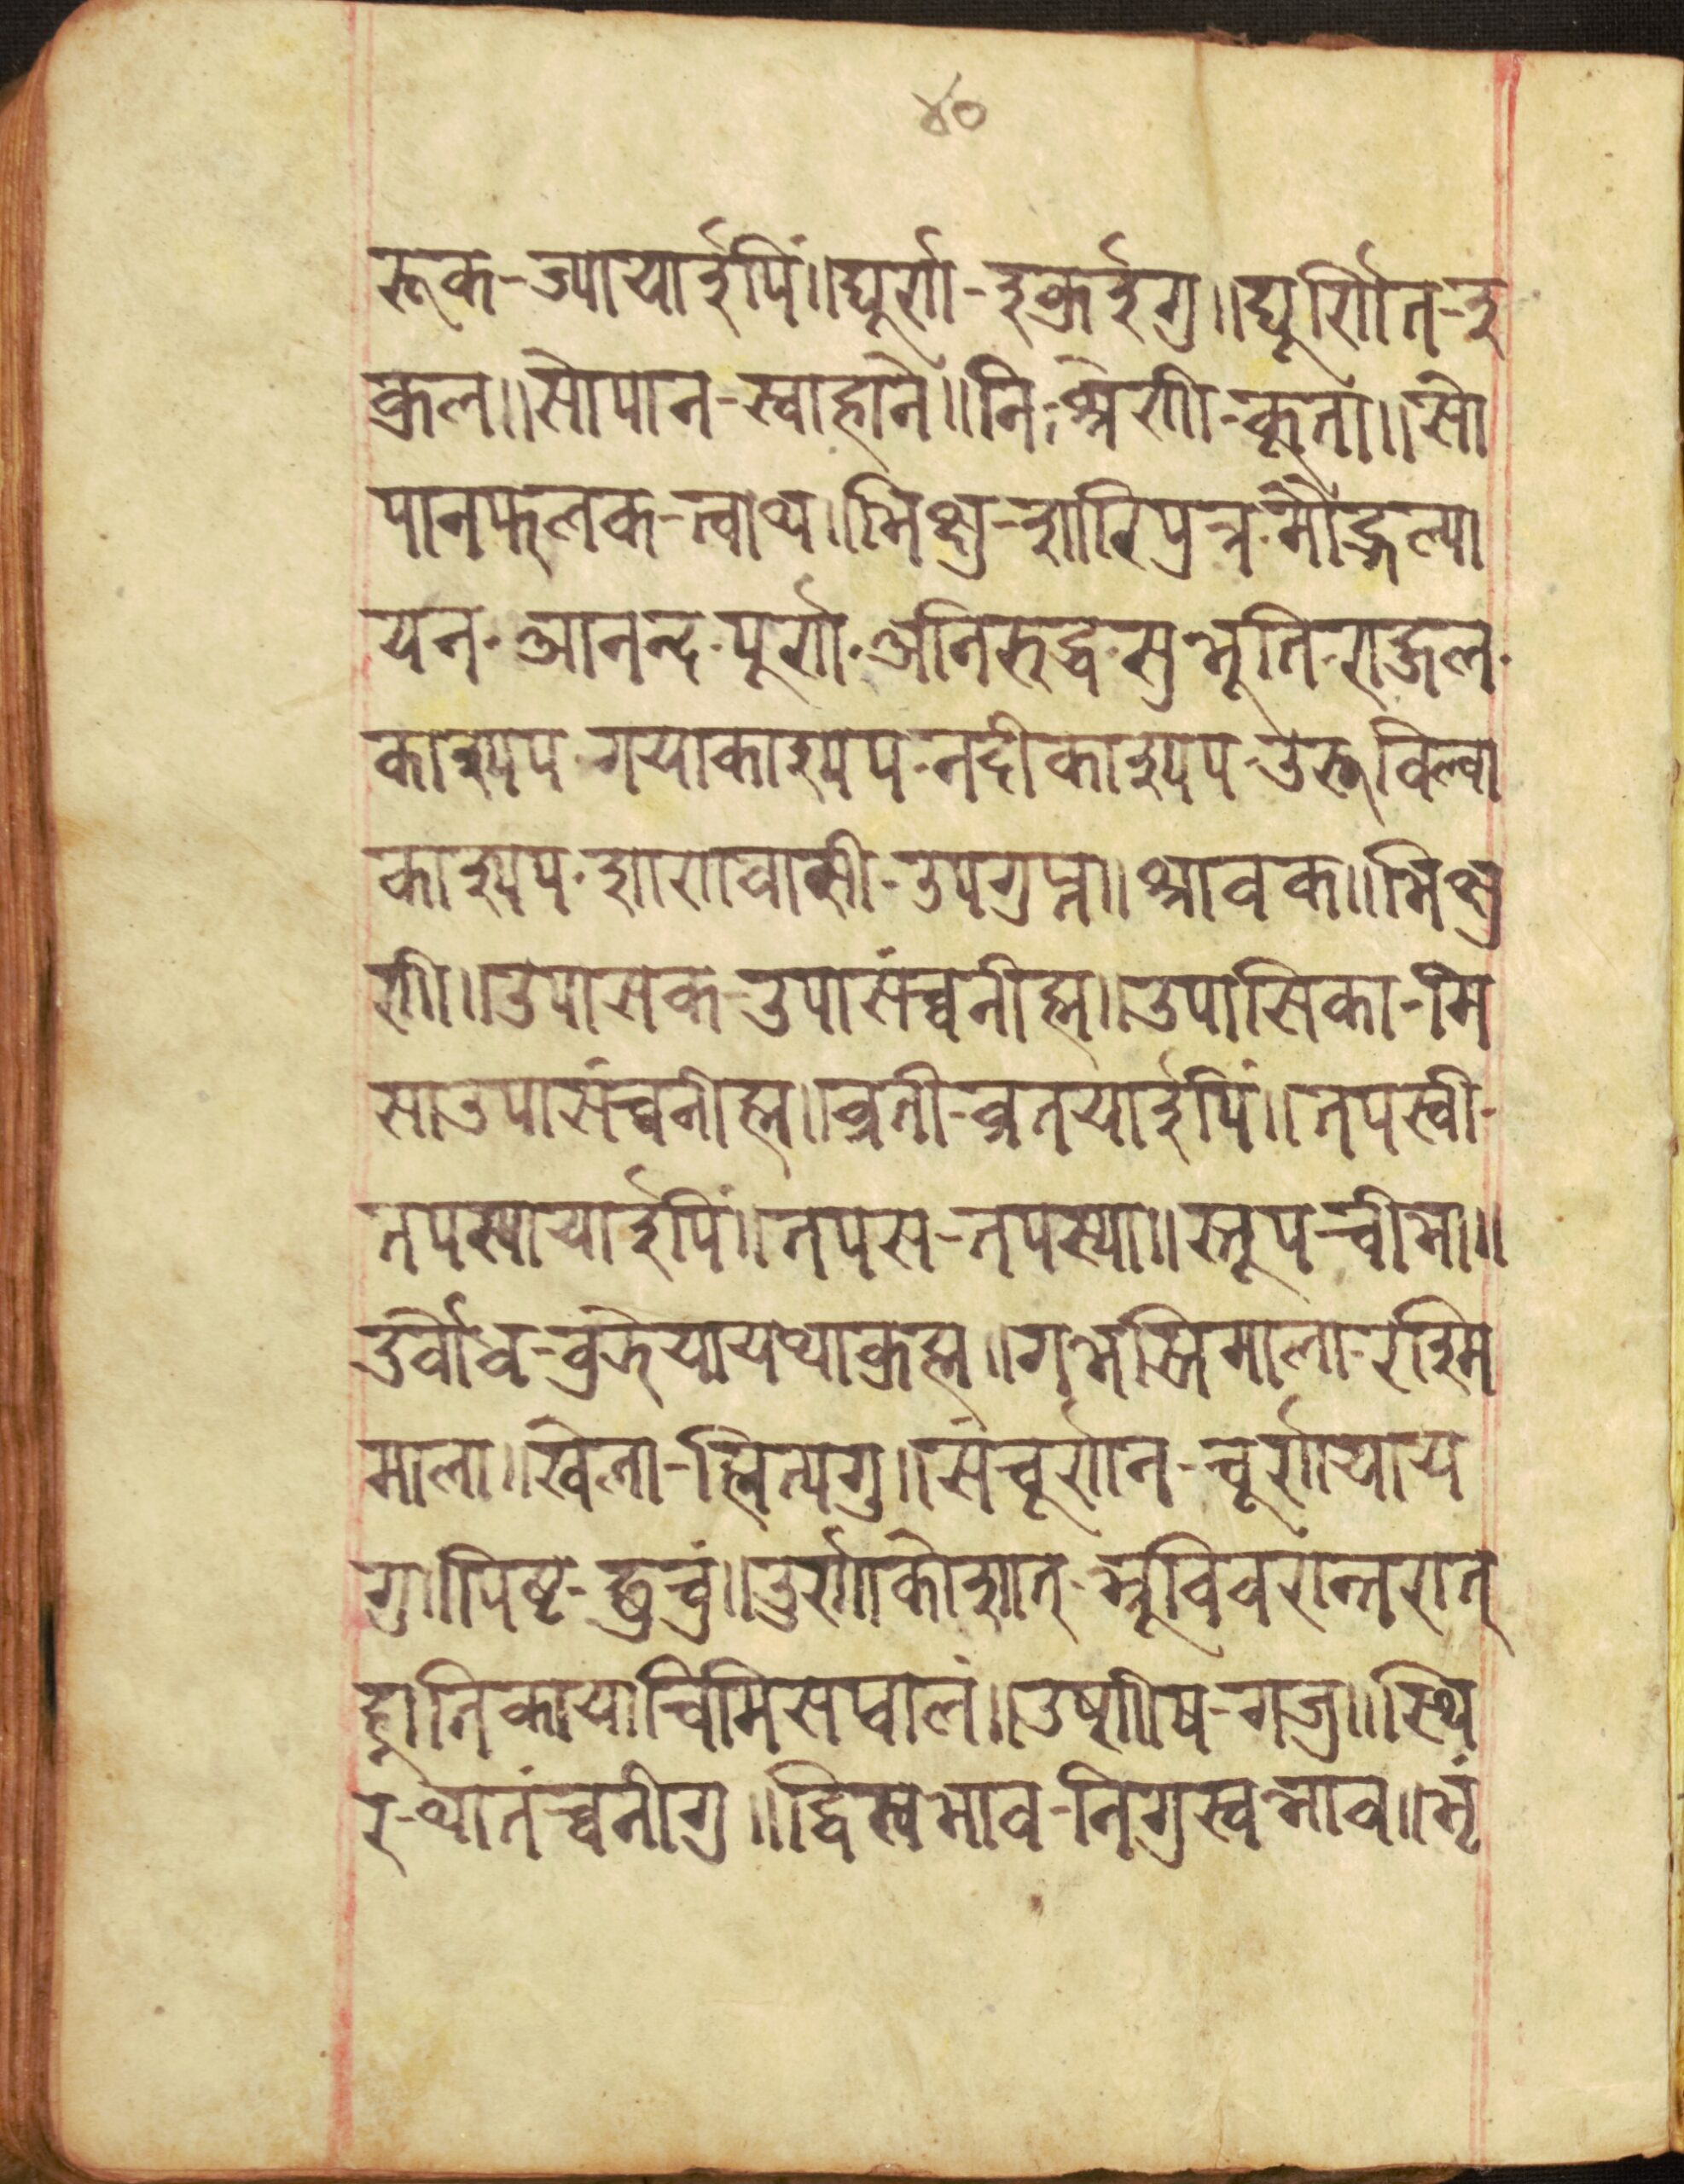 ४०
रूक-ज्यायाईपिं॥घूर्ण-दुकुईगु॥घूर्णित-दु
कुल॥सोपान-स्वाहाने॥निःश्रेणी-कूता॥सो
पानफलक-त्वाथ॥भिक्षु-शारिपुत्र·मौद्गल्या
यन·आनन्द·पूर्ण·अनिरुद्ध·सुभूति·राहुल·
काश्यप·गयाकाश्यप·नदीकाश्यप·उरुविल्वा
काश्यप·शाणवासी·उपगुप्त॥श्रावक॥भिक्षु
णी॥उपासक-उपासंच्वनीह्म॥उपासिका-मि
साउपासंच्वनीह्म॥व्रती-व्रतयाईपिं॥तपस्वी-
तपस्यायाईपिं॥तपस-तपस्या॥स्तूप-चीभा॥
दुर्वोध-वुझेयायथाकुह्म॥गभस्तिमाला-रश्मि
माला॥खेला-ह्मित्यगु॥संचूर्णन-चूर्णयाय
गु॥पिष्ट-छुचुं॥उर्णाकोशात्-भ्रूविवरान्तरात्
ह्नातिकायाचिमिसप्वालं॥उष्णीष-गजु॥स्थि
र-थातंच्वनीगु॥द्विस्वभाव-निगुस्वभाव॥भृं